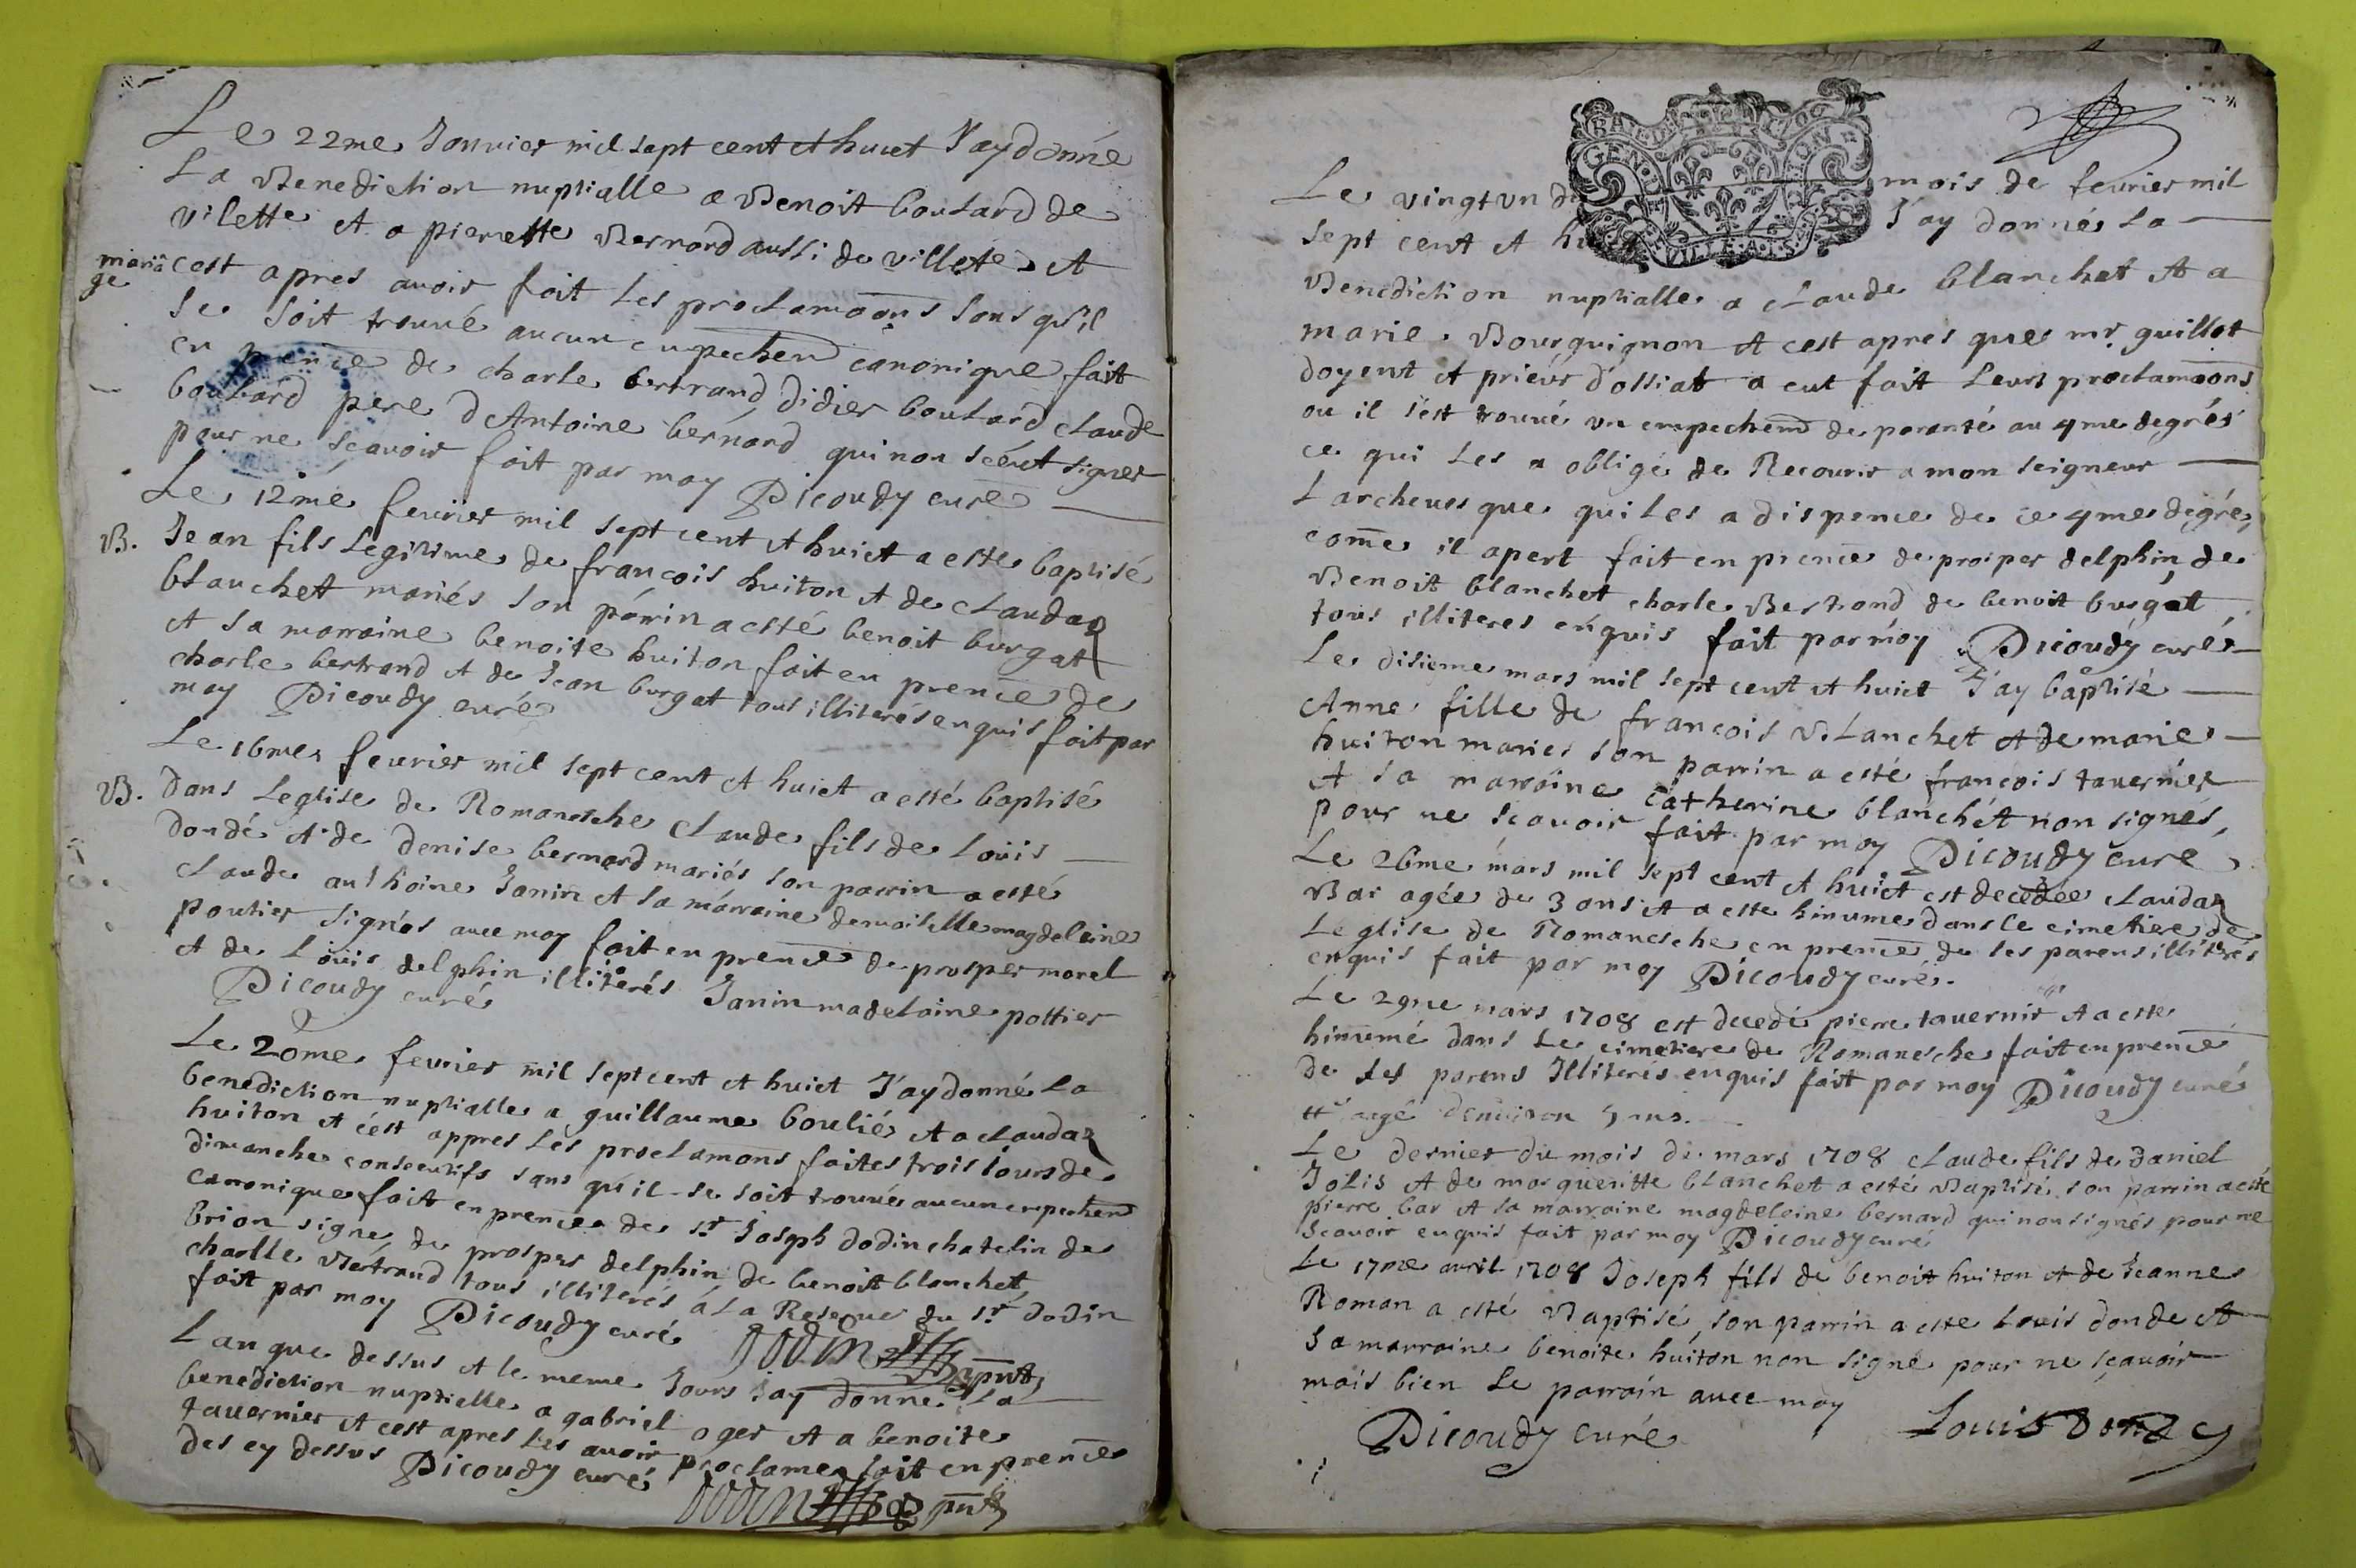 Le 22me Janvier mil sept cent et huict J'ay donné
La Benediction nuptialle a Benoit boutard de
vilette et a pierrette Bernard aussi de villete et
maria
ge
cest apres avoir fait les proclamaõns sans qu'il
se soit trouvé aucun empechem canonique fait
en p̄ence de charle bertrand, didier boutard claude
boutard pere d'Antoine bernard qui non sceut signer
pour ne sçavoir fait par moy Dicoudy curé
Le 12me fevrier mil sept cent et huict a esté baptisé
B. Jean fils legitime de francois huiton et de clauda
blanchet mariés son parrin a esté benoit burgat
et sa marraine benoite huiton fait en prence de
charle bertrand et de Jean burgat tous illiterés enquis fait par
moy Dicoudy curé
Le 16me fevrier mil sept cent et huict a esté baptisé
B. dans Leglise de Romanesche claude fils de Loüis
dondé et de denise bernard mariés son parrin a esté
claude anthoine Janin et sa marraine demoiselle magdeleine
poutier signés avec moy fait en prence de prosper morel
et de Loüis delphin illiterés Janin madelaine pottier
Dicoudy curé
Le 20me fevrier mil sept cent et huict J'ay donné la
benediction nuptialle a guillaume boulié et a clauda
huiton et cest appres les proclamõns faites trois Jours de
dimanche consecutifs sans qu'il se soit trouvé aucun empechem
canonique fait en prence de sr Joseph dodin chatelin de
brion signe, de prosper delphin de benoit blanchet,
charlle Bertrand tous illiterés á la Reserve du sr dodin
fait par moy Dicoudy curé dodin pnt
L an que dessus et le meme Jours J'ay donné la
benediction nuptielle a gabriel oger et a benoite
tavernier et cest apres les avoir proclamer fait en prence
des cy dessus Dicoudy curé
dodin pnt
BRA GEN ION VILLE A 1 S
Le vingt un du mois de fevrier mil
sept cent et hu J'ay donnés la
Benediction nuptialle a claude blanchet et a
marie Bourguignon et cest apres que mr guillot
doyent et prieur d'ossiat a eut fait Leurs proclamaõns
ou il s'est trouvé un empechem̄ de paranté au 4me degrés
ce qui les a obligé de Recourir a mon seigneur
Larchevesque qui les a dispence de ce 4me degré,
com̄e il apert fait en prence de prosper delphin, de
Benoit blanchet charle Bertrand de benoit burgat,
tous illiteres enquis fait par moy Dicoudy curé
Le disieme mars mil sept cent et huict J'ay baptisé
Anne fille de francois Blanchet et de marie
huiton mariés son parrin a esté françois tavernier
et sa marraine catherine blanchét non signés,
pour ne scavoir fait par moy Dicoudy curé
Le 26me mars mil sept cent et huict est decedée clauda
Bar agée de 3 ans et a este hinumé dans le cimetiere de
Leglise de Romanesche en prence de ses parens illiterés
enquis fait par moy Dicoudy curé.
Le 29me mars 1708 est decedé pierre tavernir et a este
hinumé dans le cimetiere de Romanesche fait en prence
de ses parens Illiterés enquis fait par moy Dicoudy curé
agé denviron 5 ans.
Le dernier du mois de mars 1708 claude fils de daniel
Jolis et de margueritte blanchet a esté Baptisé son parrin a esté
pierre bar et sa marraine magdeleine bernard qui non signés pour ne
scavoir enquis fait par moy Dicoudy curé
Le 17me avril 1708 Joseph fils de benoit huiton et de Jeanne
Roman a esté Baptisé, son parrin a este Louis donde et
sa marraine benoite huiton non signé pour ne sçavoir
mais bien le parrain avec moy
Dicoudy curé Louis Donde